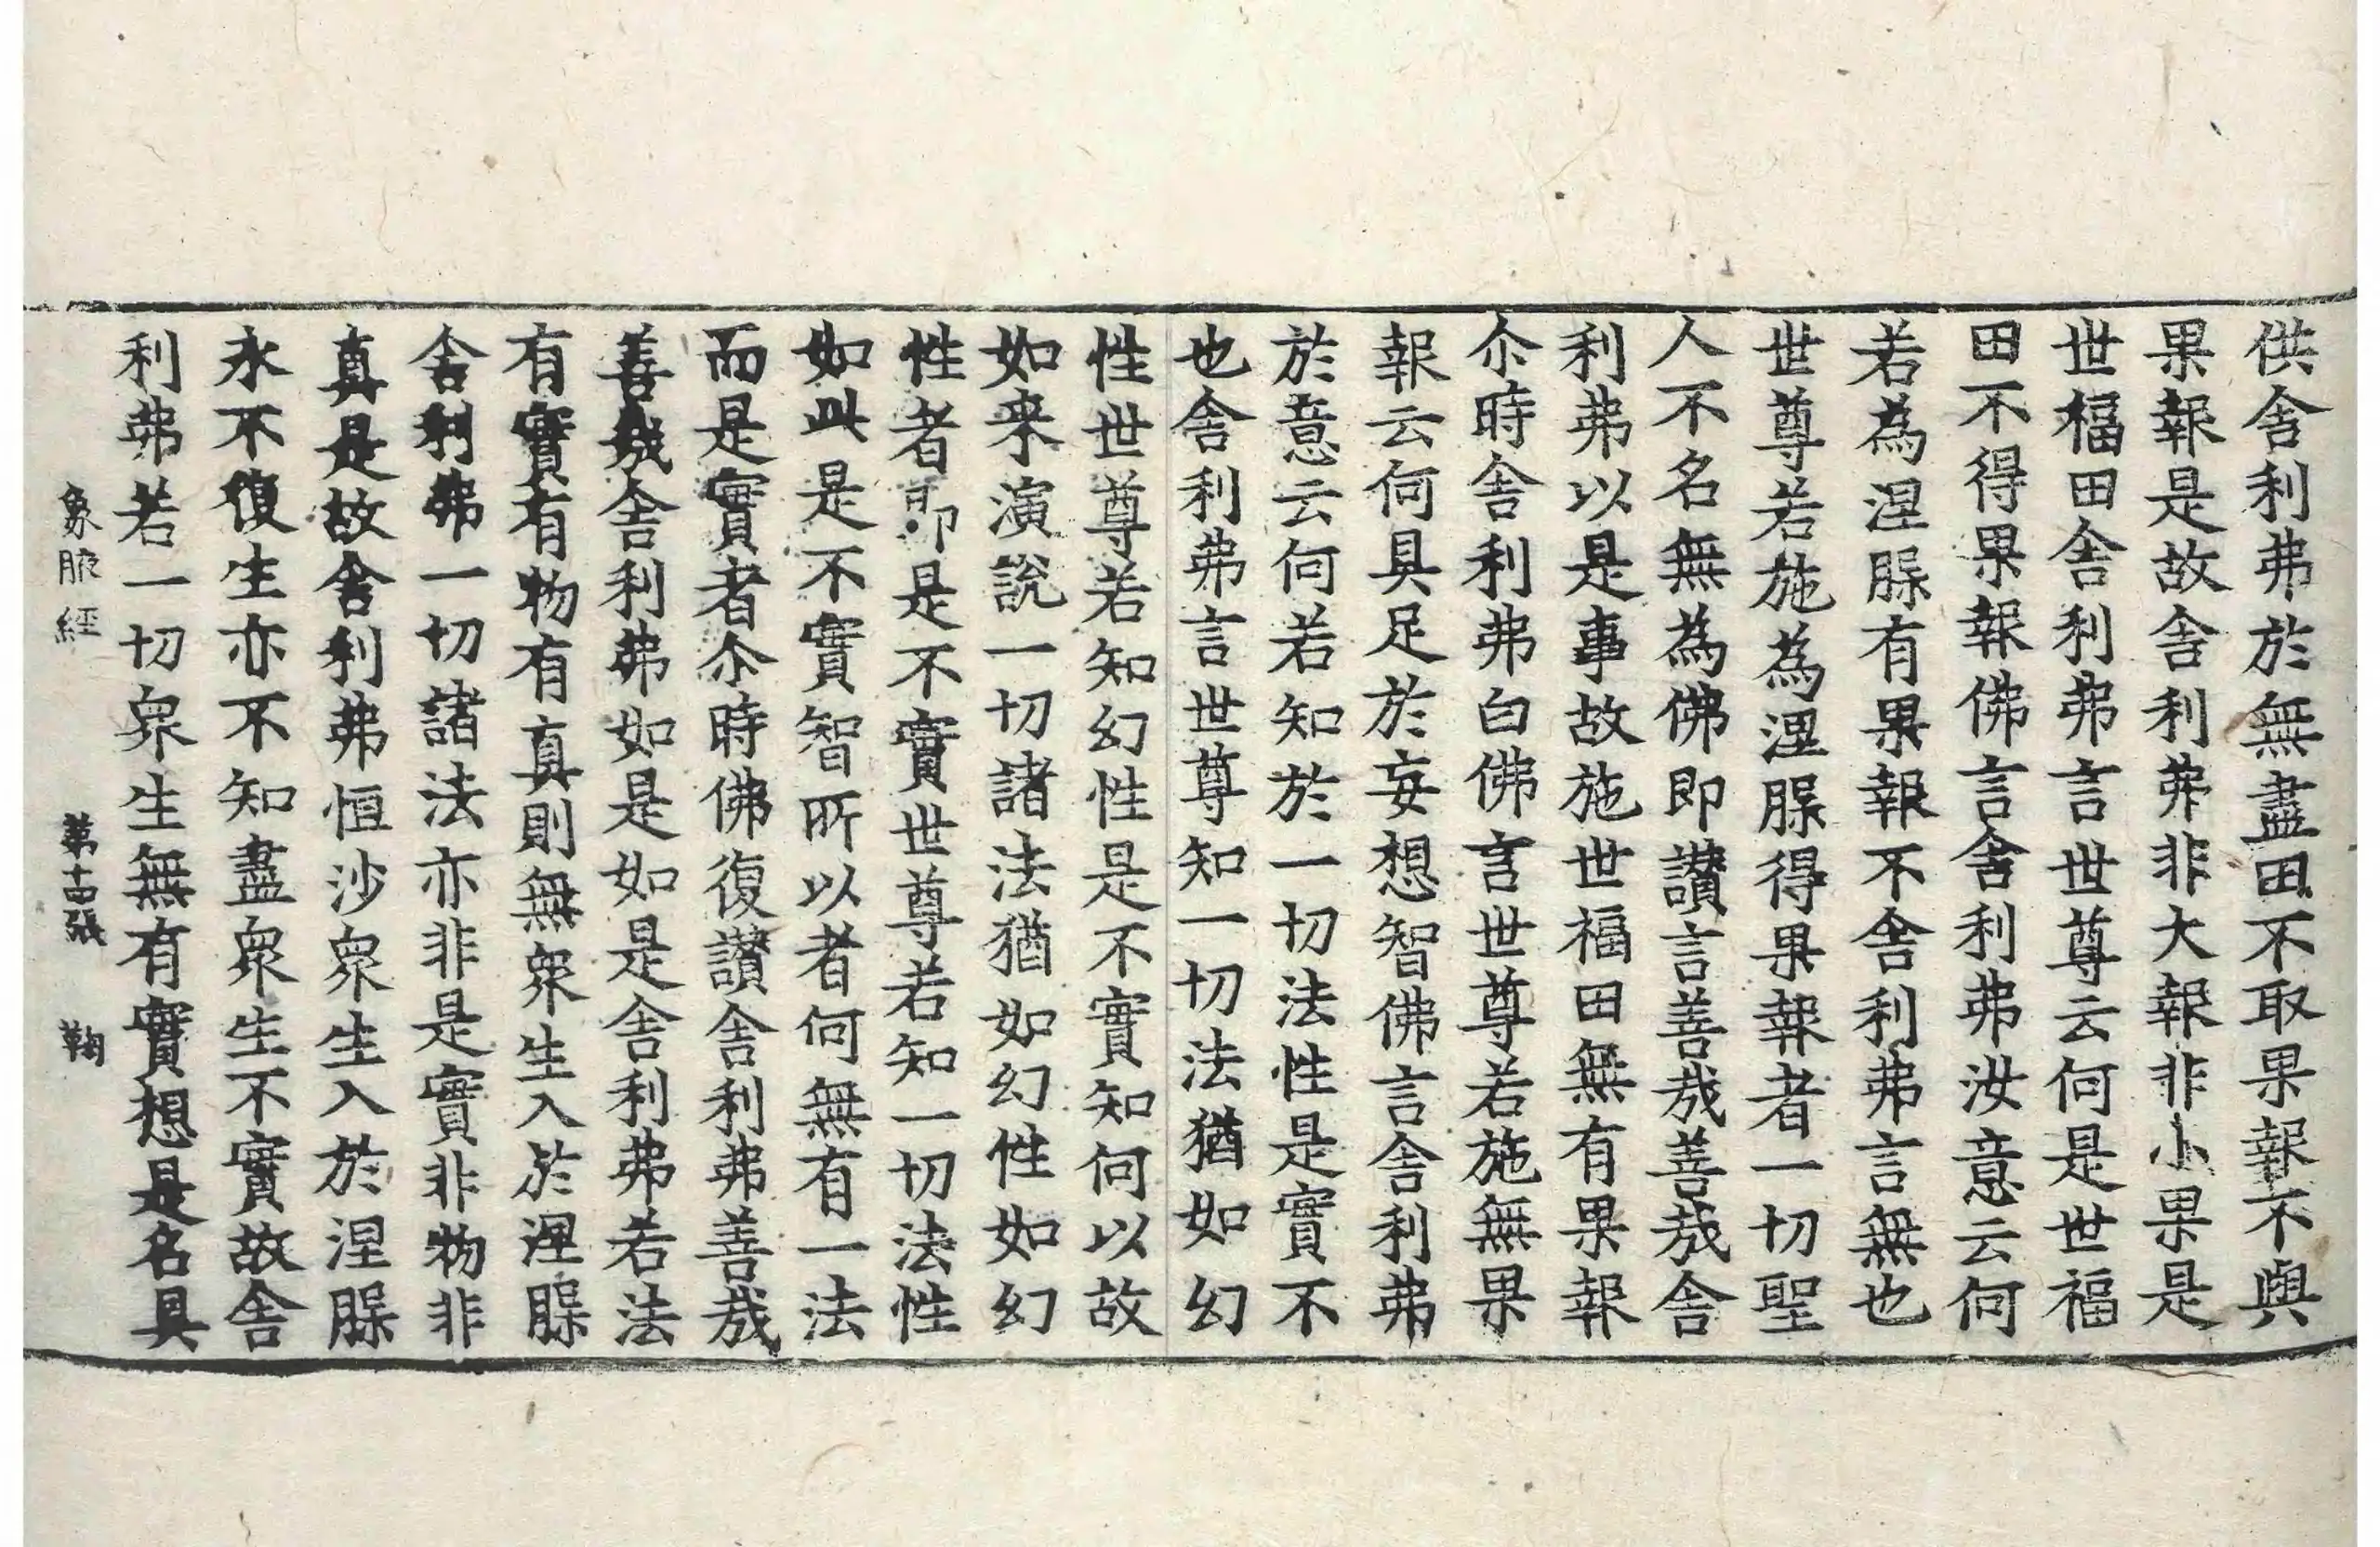 供舍利弗於無盡田不取果報不與
果報是故舍利弗非大報非小果是
世福田舍利弗言世尊云何是世福
田不得果報佛言舍利弗汝意云何
若為涅槃有果報不舍利弗言無也
世尊若施為涅槃得果報者一切聖
人不名無為佛即讃言善哉善哉舍
利弗以是事故施世福田無有果報
尒時舍利弗白佛言世尊若施無果
報云何具足於妄想智佛言舍利弗
於意云何若知於一切法性是實不
也舍利弗言世尊知一切法猶如幻
性世尊若知幻性是不實知何以故
如来演說一切諸法猶如幻性如幻
性者即是不實世尊若知一切法性
如此是不實智所以者何無有一法
而是實者尒時佛復讃舍利弗善哉
善哉舍利弗如是如是舍利弗若法
有實有物有真則無衆生入於涅槃
舍利弗一切諸法亦非是實非物非
真是故舍利弗恒沙衆生入於涅槃
永不復生亦不知盡衆生不實故舍
利弗若一切衆生無有實想是名具
象腋經　第十四張　鞠